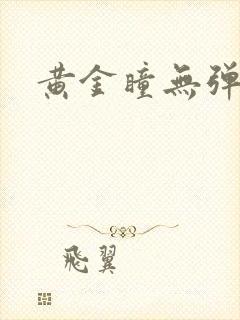 黄金瞳無弹
飛翼